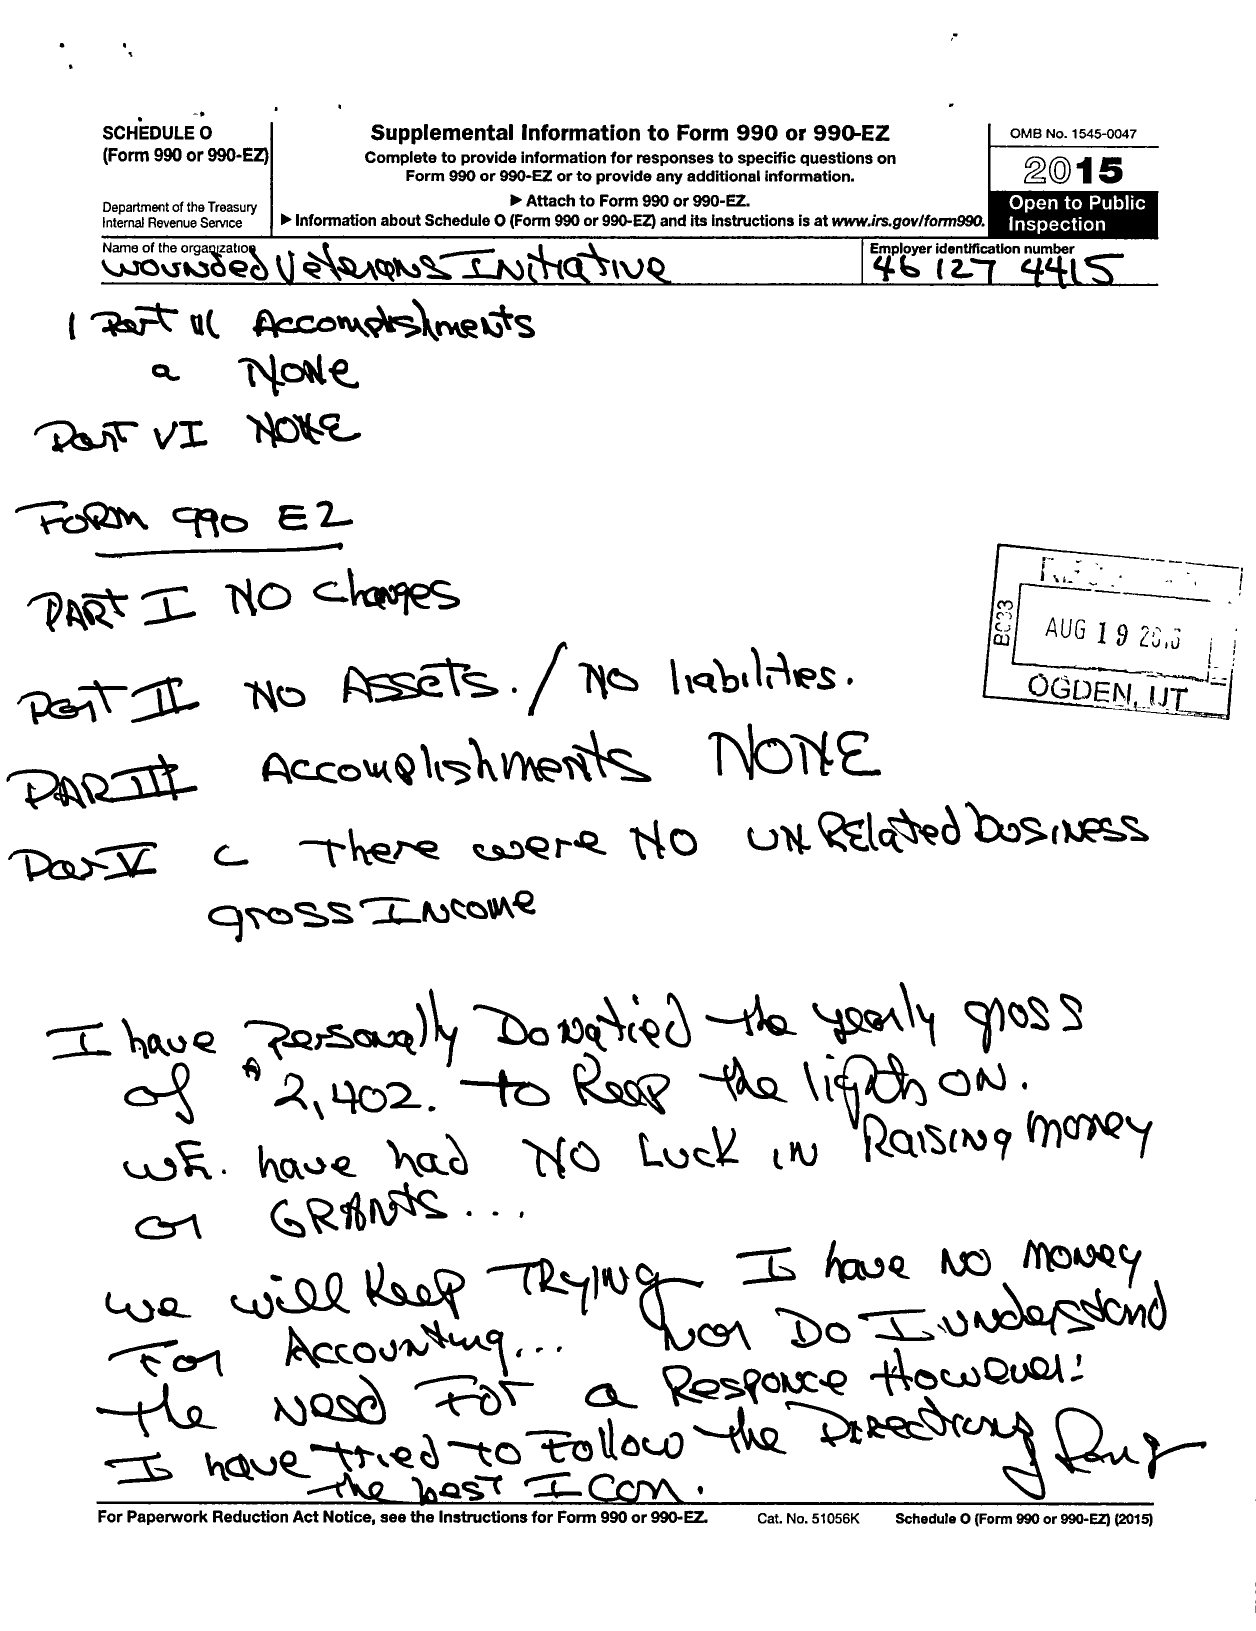 SCHEDULE O
(Form 990 or 990-EZ)
Department of the Treasury
Internal Revenue Service
Supplemental Information to Form 990 or 990-EZ
Complete to provide information for responses to specific questions on
Form 990 or 990-EZ or to provide any additional information.
▶ Attach to Form 990 or 990-EZ.
▶ Information about Schedule O (Form 990 or 990-EZ) and its instructions is at www.irs.gov/form990.
OMB No. 1545-0047
2015
Open to Public
Inspection
Name of the organization
Wounded Veterans Initiative
Employer identification number
46 127 4415
1 Part III Accomplishments
a NONe
Part VI NONE
FORM 990 EZ
PART I NO Changes
Part II NO Assets. / NO liabilities.
PART III Accomplishments NONE
Part V c There were NO UNRElated business
gross Income
BC33
AUG 19
OGDEN, UT
I have Personally Donatied the yearly gross
of $2,402. to Keep the lights ON.
WE. have had NO Luck in Raising money
or GRANTS...
we will Keep TRYING I have NO MONey
For Accounting... Nor Do I understand
the Need For a Responce However!
I have tried to Follow the Directions
the best I Can.
For Paperwork Reduction Act Notice, see the Instructions for Form 990 or 990-EZ.
Cat. No. 51056K
Schedule O (Form 990 or 990-EZ) (2015)